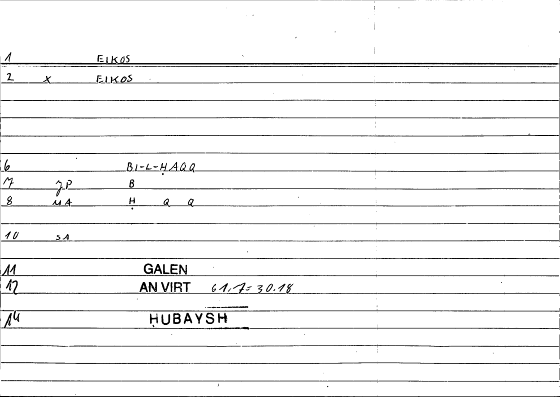 1 EIKOS
2 x EIKOS
6 BI-L-ḤAQQ
7 JP B
8 MA Ḥ Q Q
10 SA
11 GALEN
12 AN VIRT 61,7=30.18
14 ḤUBAYSH